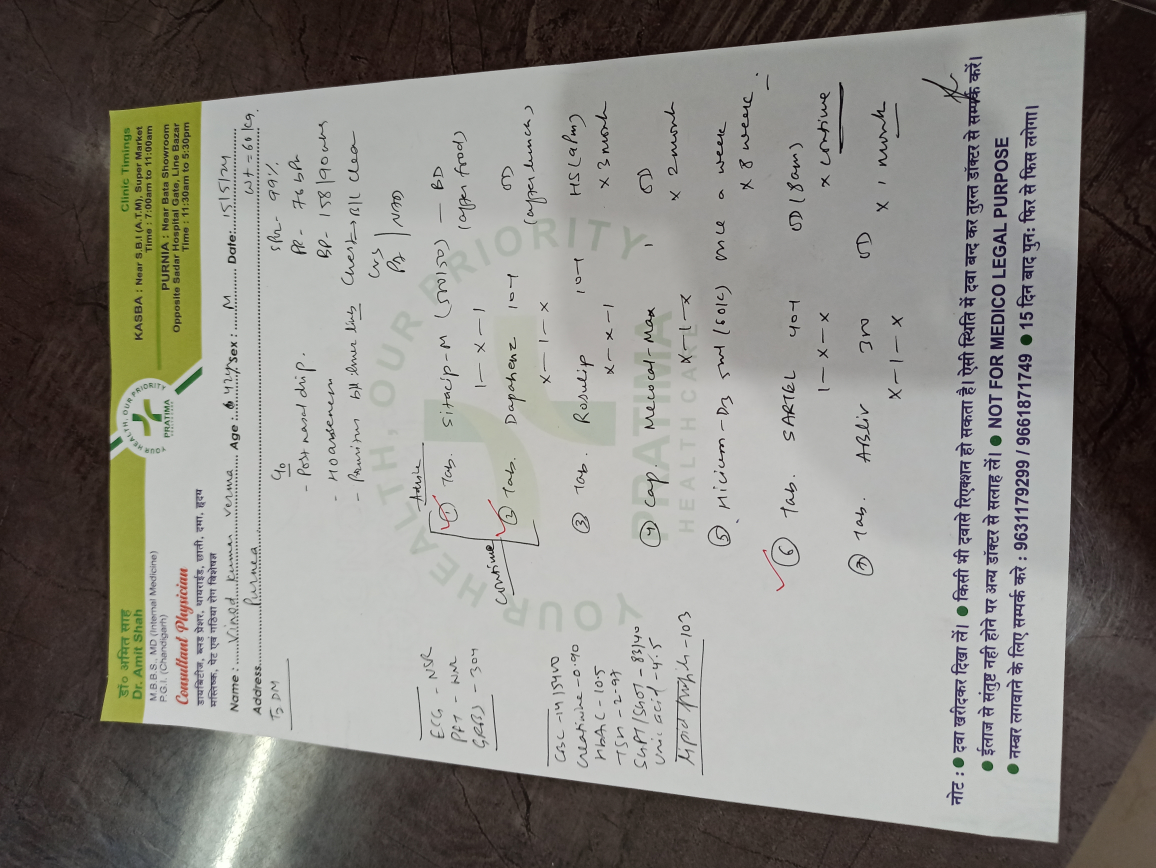 डॉ० अमित साह
Dr. Amit Shah
M.B.B.S., MD (Internal Medicine)
P.G.I. (Chandigarh)
Consultant Physician
डायबिटीज, ब्लड प्रेशर, थायराईड, छाती, दमा, हृदय
मस्तिष्क, पेट एवं गठिया रोग विशेषज्ञ
YOUR HEALTH, OUR PRIORITY
PRATIMA
HEALTH CARE
Clinic Timings
KASBA : Near S.B.I (A.T.M), Super Market
Time : 7:00am to 11:00am
PURNIA : Near Bata Showroom
Opposite Sadar Hospital Gate, Line Bazar
Time : 11:30am to 5:30pm
Name : Vinod Kumar Verma Age : 42y Sex : M Date: 15/5/24
Address Purnea wt = 60 kg
T2DM
c/o
- Post nasal drip.
- Hoarseness
- Pruritus b/l lower limb
SPO2 - 99%
PR - 76 bpm
BP - 158/90 mmHg
Chest - B/L clear
CVS
PA | NAD
ECG - NSR
GRBS - 304
Creatinine - 0.90
HbA1C - 10.5
TSH - 2.97
SGPT/SGOT - 83/40
Uric acid - 4.5
Lipid profile - 103
Advise
continue
① Tab. Sitacip-M (50/50) — BD
1 — x — 1 (after food)
② Tab. Dapahenz 10-1 OD
x — 1 — x (after lunch)
③ Tab. Rosulip 10-1 HS (9pm)
x — x — 1 x 3 month
④ Cap. Mecocal-Max 1 OD
x — 1 — x x 2 month
⑤ D3 5ml (60K) once a week
x 8 week
⑥ Tab. SARTEL 40-1 OD (8am)
1 — x — x x continue
⑦ Tab. 300 OD
x — 1 — x x 1 month
YOUR HEALTH, OUR PRIORITY
PRATIMA
HEALTH CARE
नोट : ● दवा खरीदकर दिखा लें। ● किसी भी दवासे रिएक्शन हो सकता है। ऐसी स्थिति में दवा बन्द कर तुरन्त डॉक्टर से सम्पर्क करें।
● ईलाज से संतुष्ट नही होने पर अन्य डॉक्टर से सलाह लें। ● NOT FOR MEDICO LEGAL PURPOSE
● नम्बर लगवाने के लिए सम्पर्क करे : 9631179299 / 9661871749 ● 15 दिन बाद पुन: फिर से फिस लगेगा।